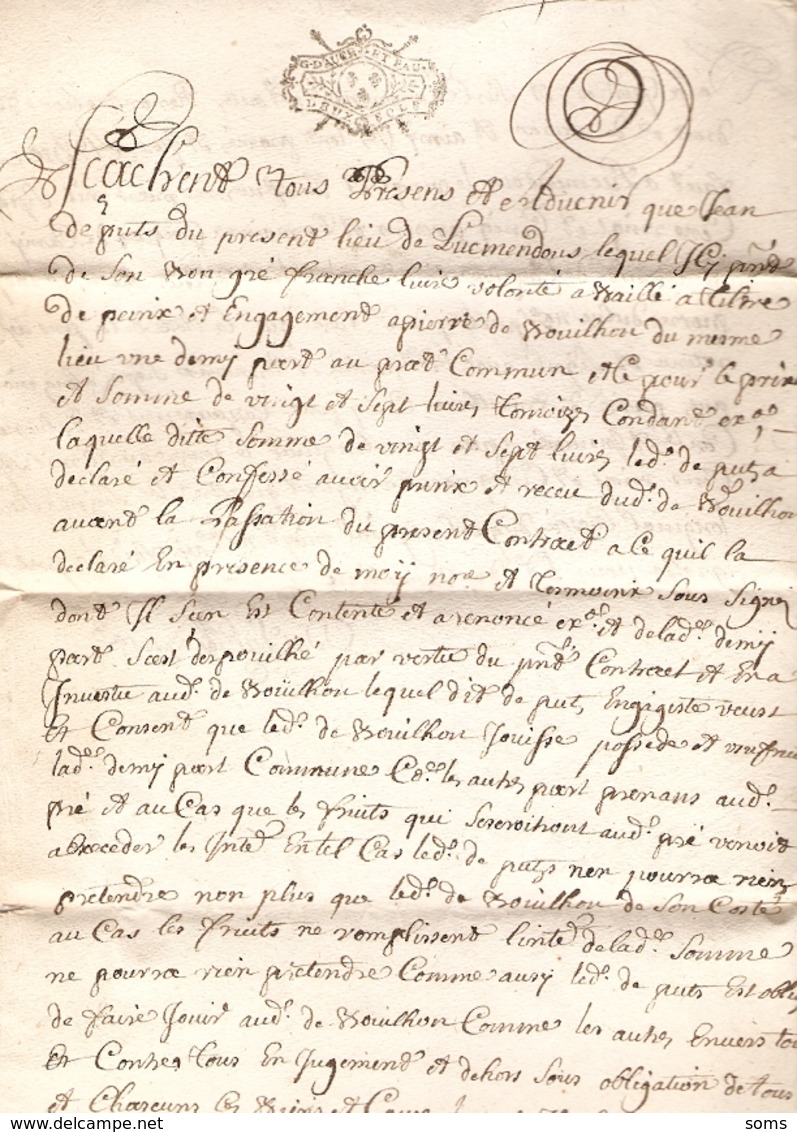 G. D'AUCH ET PAU
DEUX SOLS
Scachent tous presens et advenir que Jean
de puts du present lieu de Lucmendous lequel Ici pnt
de Son bon gré franche livre volonté a baillé a titre
de peirix et Engagement a pierre de vouilhou du mesme
lieu une demij part au prat Commun et Ce pour le prix
et Somme de vingt et Sept livres tornoizes Condant
laquelle ditte Somme de vingt et Sept livres led. de puts a
declaré et Confessé avoir prinx et receu dud. de vouilhou
avant la Passation du present Contract a Ce quil la
declaré En presence de moij nore et tesmoinx Sous Signes
dont Il San Est Contenté et a renoncé et de lad. demij
part Sest depouilhé par vertu du pnt Contract et En a
Investu aud. de vouilhou lequel dit de puts Engagiste veut
et Consent que led. de vouilhou Jouisse possede et
lad. demij part Commune les autres part prenans aud.
pré et au Cas que les fruits qui aud. pré
a Exceder les Inte En tel Cas led. de puts nen pourra rien
pretendre non plus que led. de vouilhou de Son Costé
au Cas les fruits ne romplissent linte de lad. Somme
ne pourra rien pretendre Comme ausy led. de puts Est
de faire Jouir aud. de vouilhou Comme les autres Envers
et Contre tous En Jugement et dehors Sous obligation de tous
et Chascuns
soms